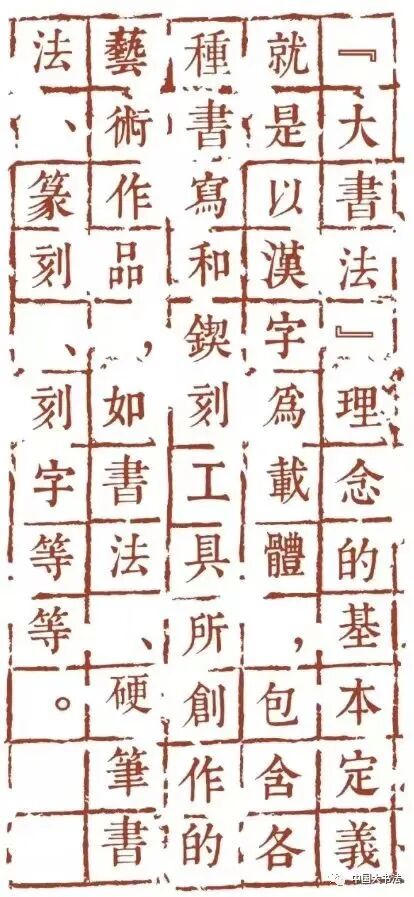 『大書法』理念的基本定義
就是以漢字爲載體，包含各
種書寫和鍥刻工具所創作的
藝術作品，如書法、硬筆書
法、篆刻、刻字等等。
中国大书法